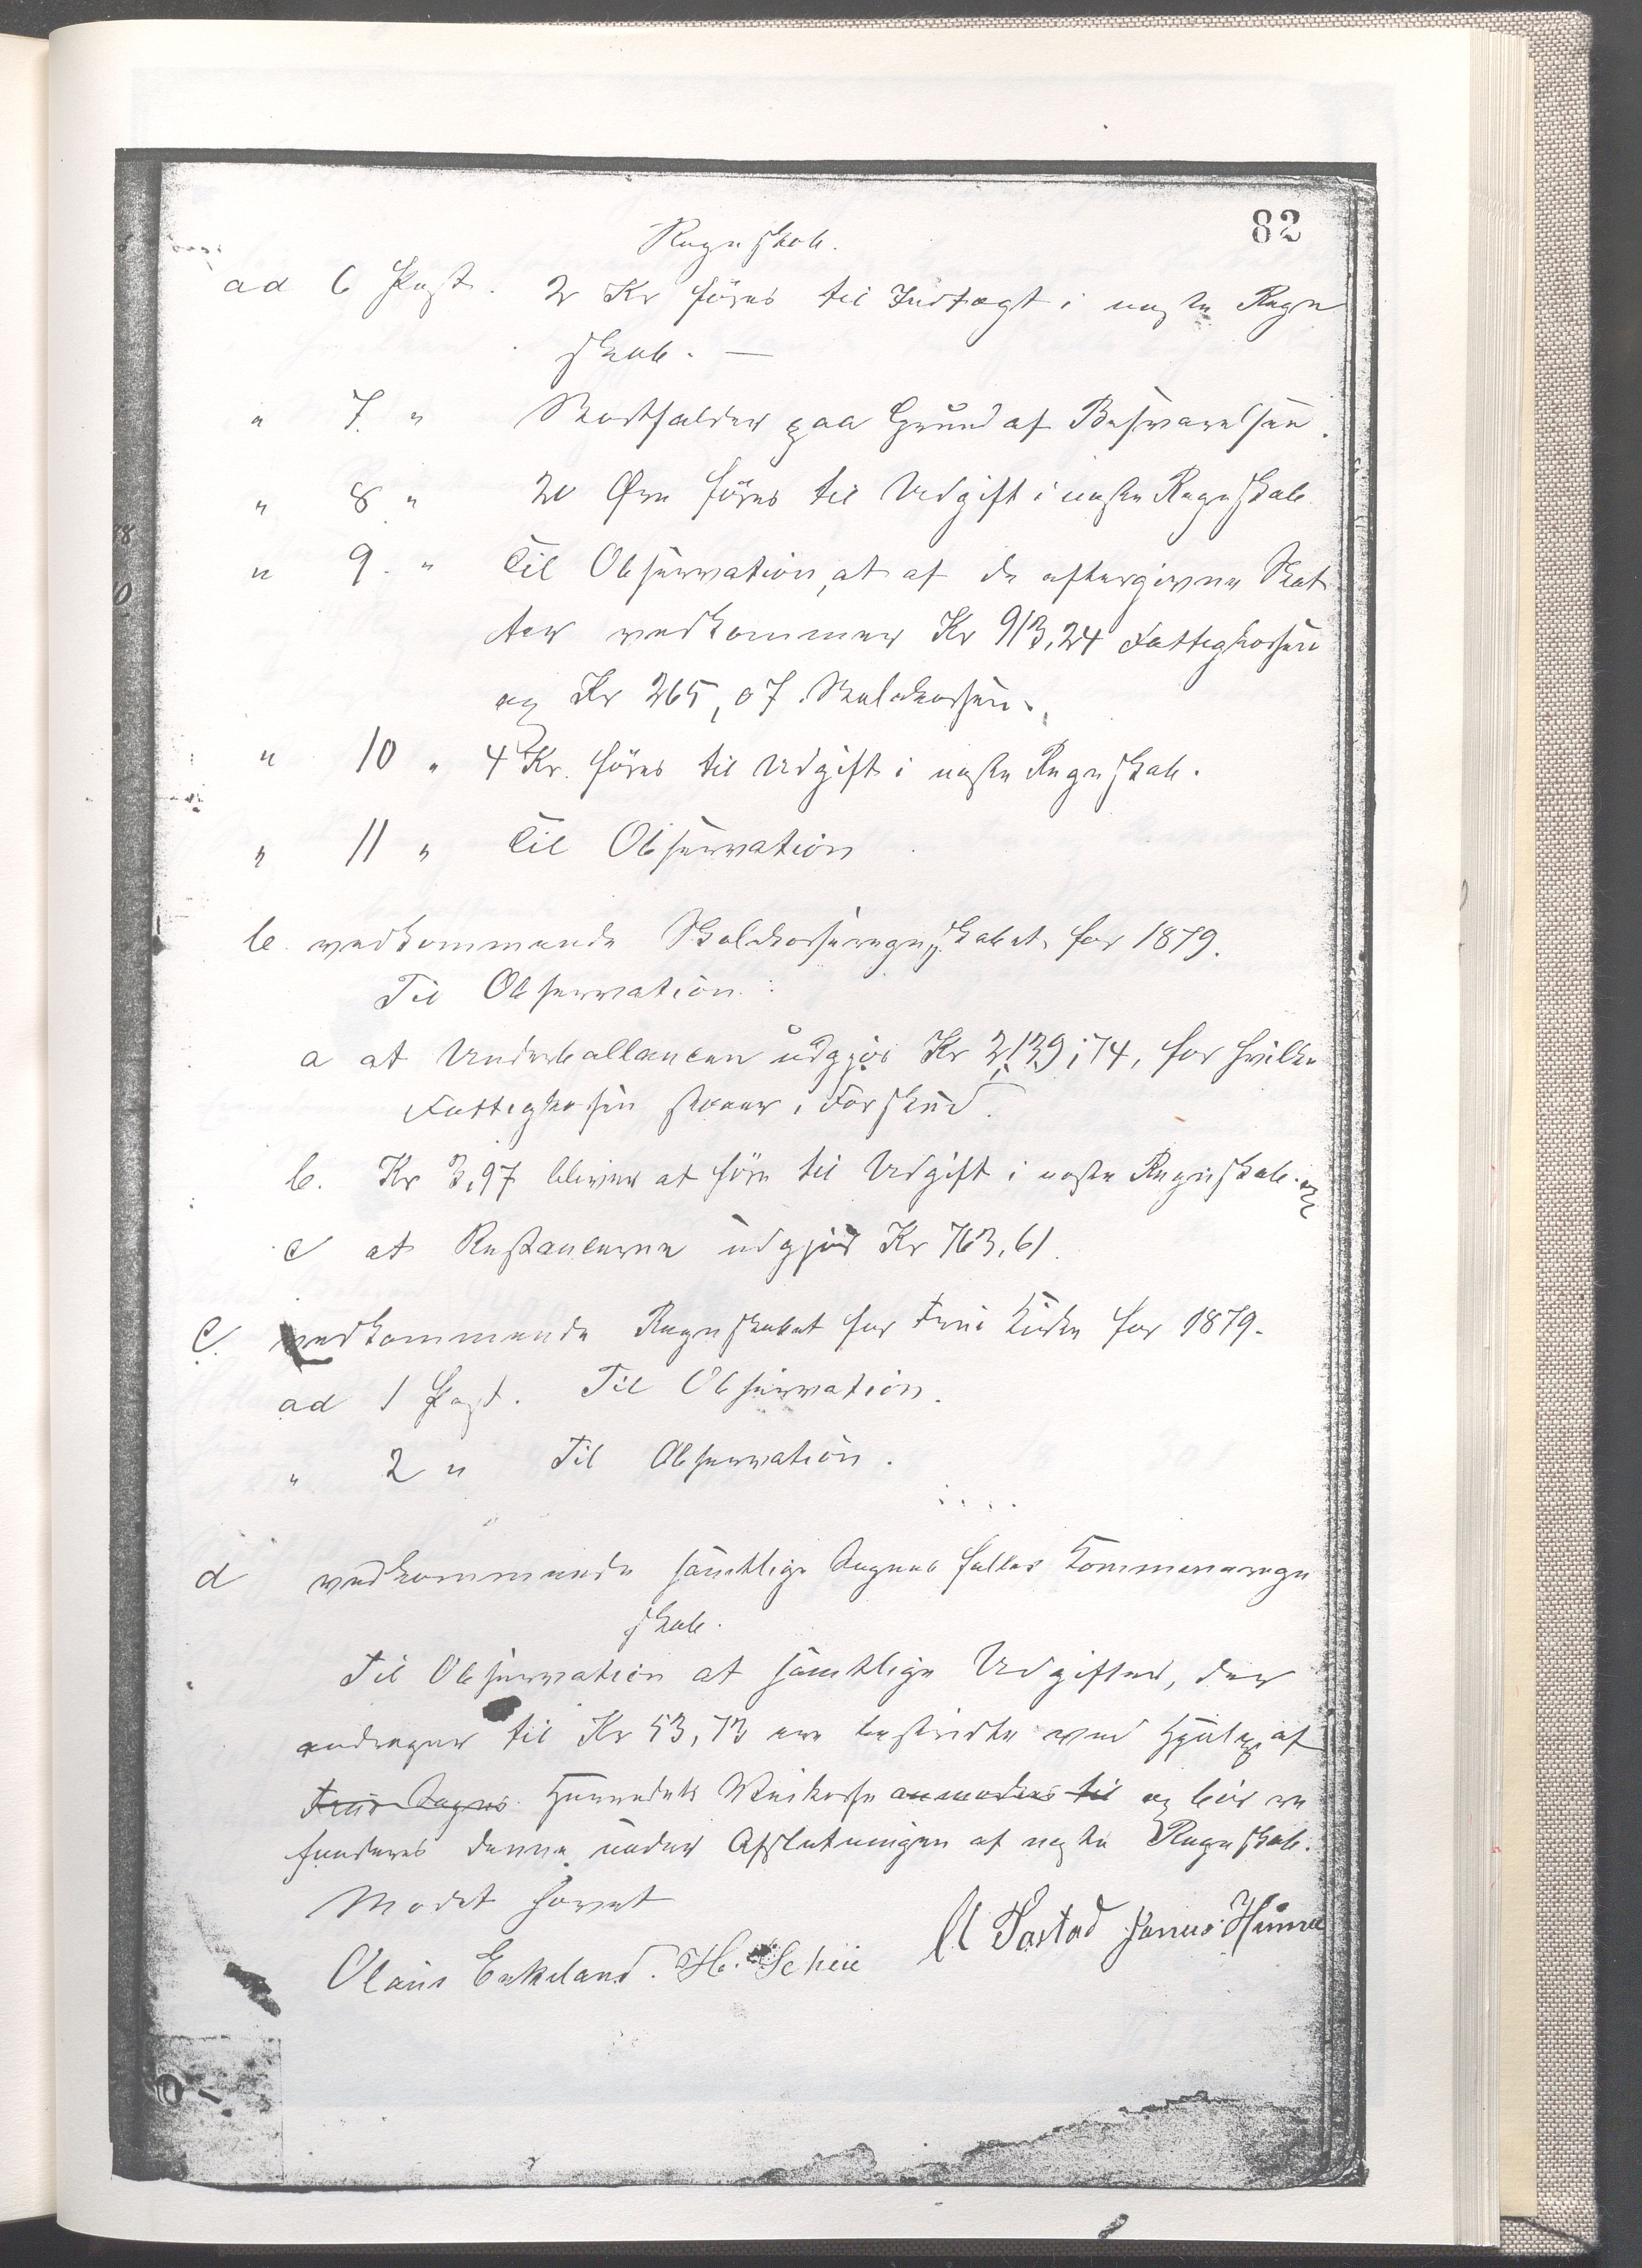 82
Regnskab.
ad 6 Post. 2 Kr föres til Indtægt i næste Regn
skab. —
" 7 " Bortfalder paa Grund af Besvarelsen.
" 8 " 20 Øre föres til Udgift i næste Regnskab
" 9. " Til Observation, at af de eftergivne Skat
ter vedkommer Kr 913,24 Fattigkassen
og Kr 265,07 Skolekassen.
" 10 " 4 Kr. föres til Udgift i næste Regnskab.
" 11 " Til Observation
b. vedkommende Skolekasseregnskabet for 1879.
Til Observation:
a at Underballancen udgjør Kr 2139,74, for hvilke
Fattigkassen staaer i Forskud.
b. Kr 3,97 bliver at före til Udgift i næste Regnskab.
c at Restancerne udgjör Kr 763,61.
c vedkommende Regnskabet for Kirke for 1879.
ad 1 Post. Til Observation.
" 2 " Til Observation.
d vedkommende samtlige Sognes fælles Kommuneregn
skab.
Til Observation at samtlige Udgifter, der
andrager til Kr 53,73 ere bestridte ved Hjælp af
Sogns Herredets Veikasse anmodes til og bör re
funderes denne under Afslutningen af næste Regnskab.
Mødet hævet
Olaus Eskeland. H. Scheie M Tastad Hinna